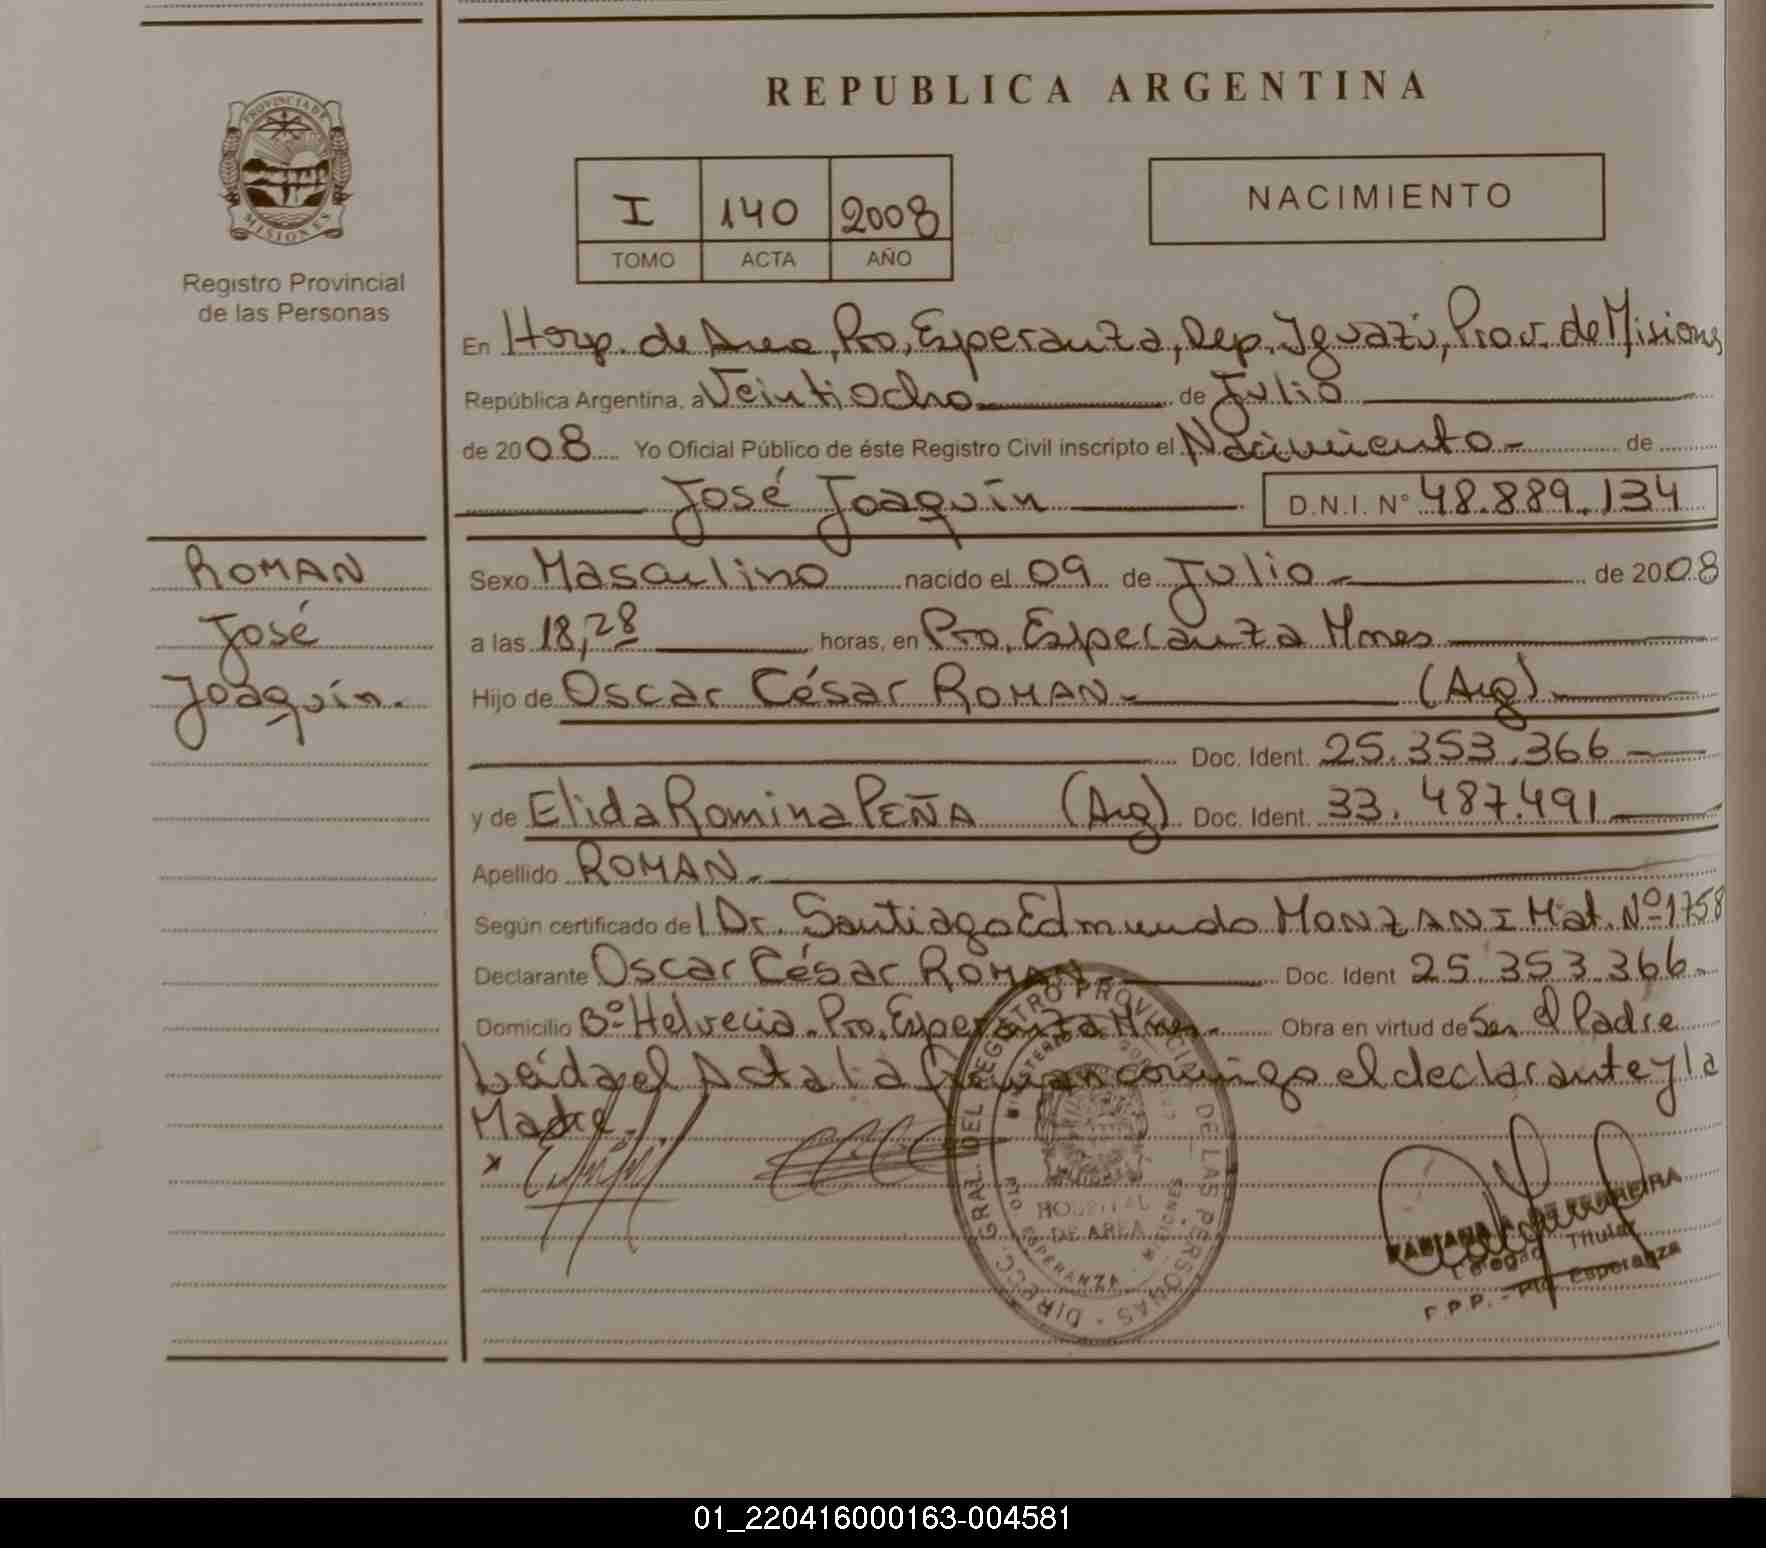 PROVINCIA DE
MISIONES
Registro Provincial
de las Personas
ROMAN
José
Joaquín.
REPUBLICA ARGENTINA
I 140 2008
TOMO ACTA AÑO
NACIMIENTO
En Hosp. de Area, Pto, Esperanza, Dep. Iguazú, Prov. de Misiones
República Argentina, a Veintiocho de Julio
de 2008 Yo Oficial Público de éste Registro Civil inscripto el Nacimiento - de
José Joaquín D.N.I. N° 48.889.134
Sexo Masculino nacido el 09 de Julio - de 2008
a las 18,28 horas, en Pto. Esperanza Mnes
Hijo de Oscar César ROMAN - (Arg)
Doc. Ident. 25.353.366
y de Elida Romina PEÑA (Arg) Doc. Ident. 33.487.491
Apellido ROMAN.
Según certificado del Dr. Santiago Edmundo MONZANI Mat. Nº 1758
Declarante Oscar César ROMAN Doc. Ident 25.353.366
Domicilio Bº Helvecia. Pto. Esperanza Mnes. Obra en virtud de Ser el Padre
Leída el Acta la firman conmigo el declarante y la
Madre.
DIRECC. GRAL. DEL REGISTRO PROVINCIAL DE LAS PERSONAS
MINISTERIO DE GOBIERNO
HOSPITAL
DE AREA
PTO. ESPERANZA - MISIONES
DE FERREIRA
Delegada Titular
r.p.p. - Pto. Esperanza
01_220416000163-004581